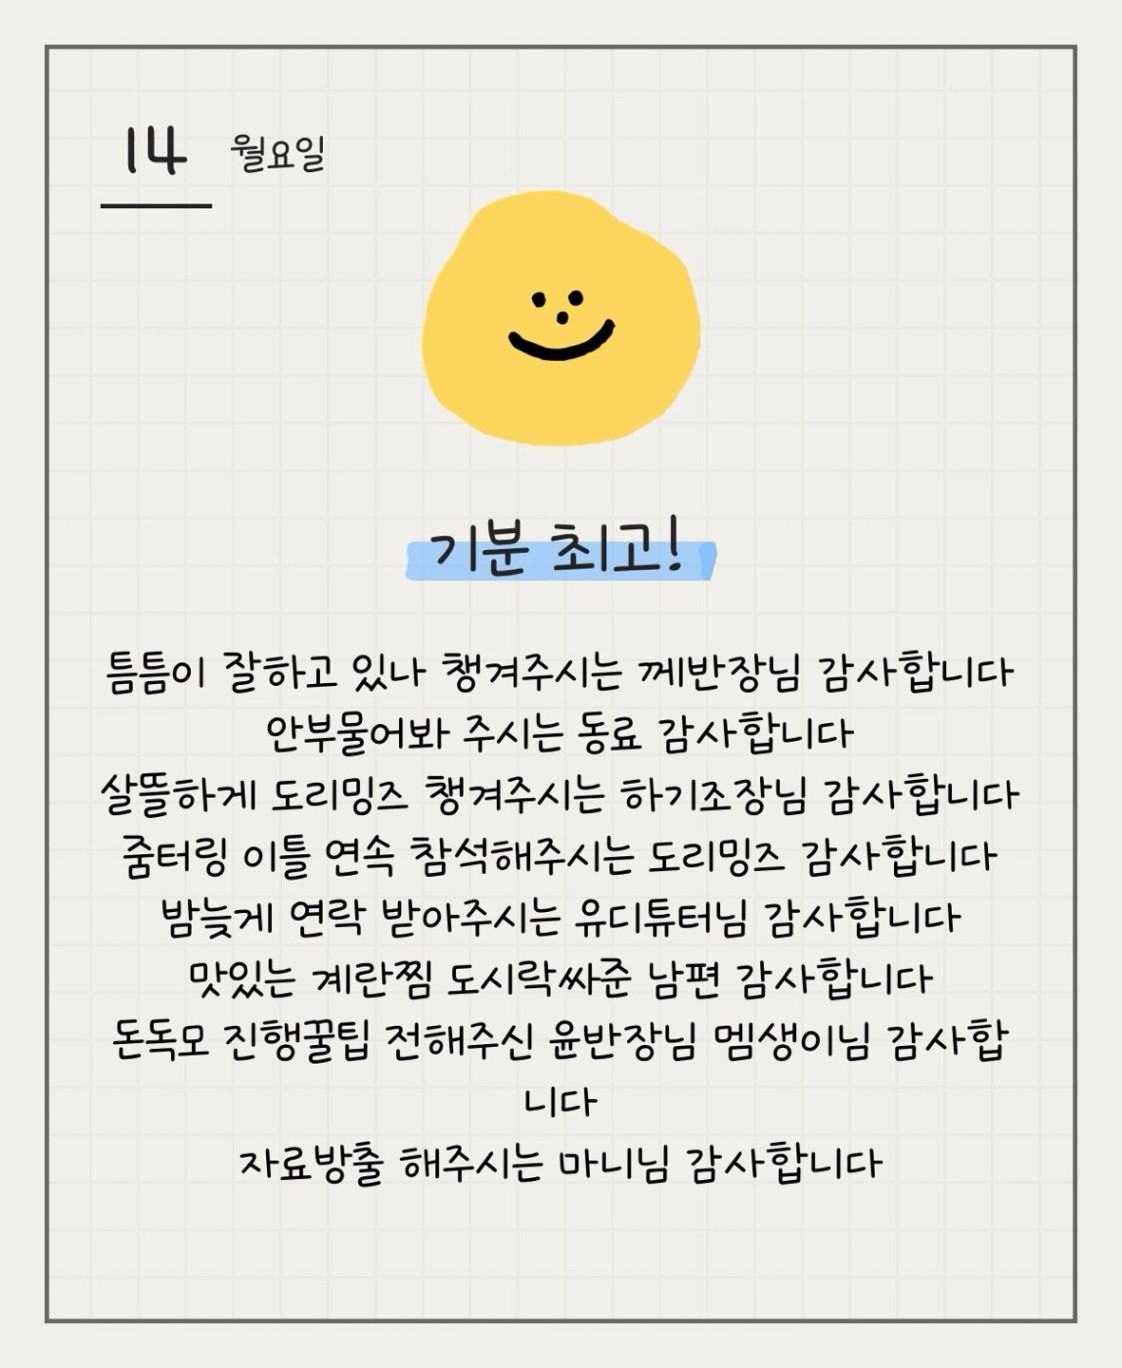 14 월요일
기분 최고!
틈틈이 잘하고 있나 챙겨주시는 께반장님 감사합니다
안부물어봐 주시는 동료 감사합니다
살뜰하게 도리밍즈 챙겨주시는 하기조장님 감사합니다
줌터링 이틀 연속 참석해주시는 도리밍즈 감사합니다
밤늦게 연락 받아주시는 유디튜터님 감사합니다
맛있는 계란찜 도시락싸준 남편 감사합니다
돈독모 진행꿀팁 전해주신 윤반장님 멤생이님 감사합
니다
자료방출 해주시는 마니님 감사합니다